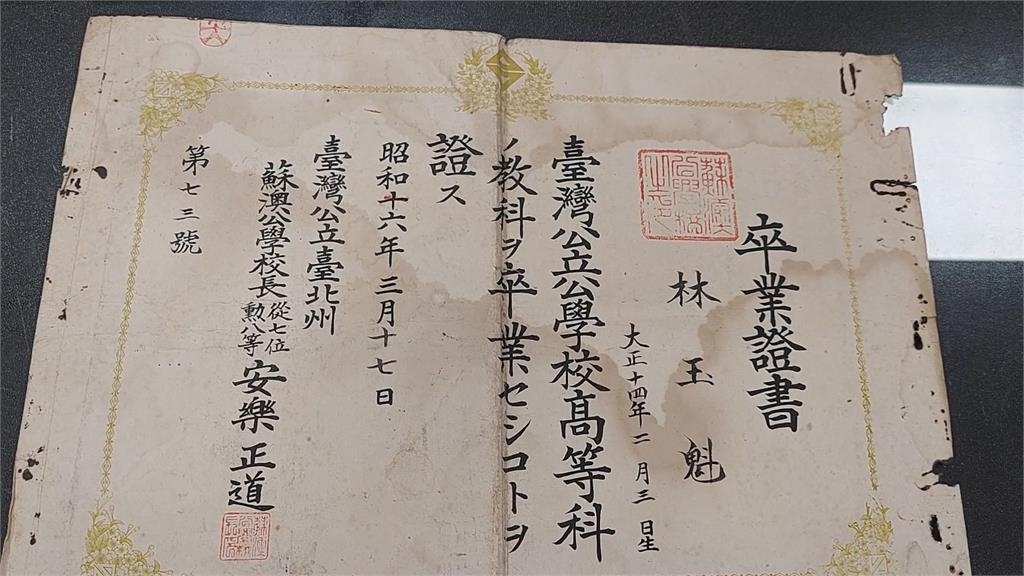 卒業證書
林玉魁
大正十四年二月三日生
臺灣公立公學校高等科
ノ教科ヲ卒業セシコトヲ
證ス
昭和十六年三月十七日
臺灣公立臺北州
蘇澳公學校長從七位勳八等安樂正道
第七三號